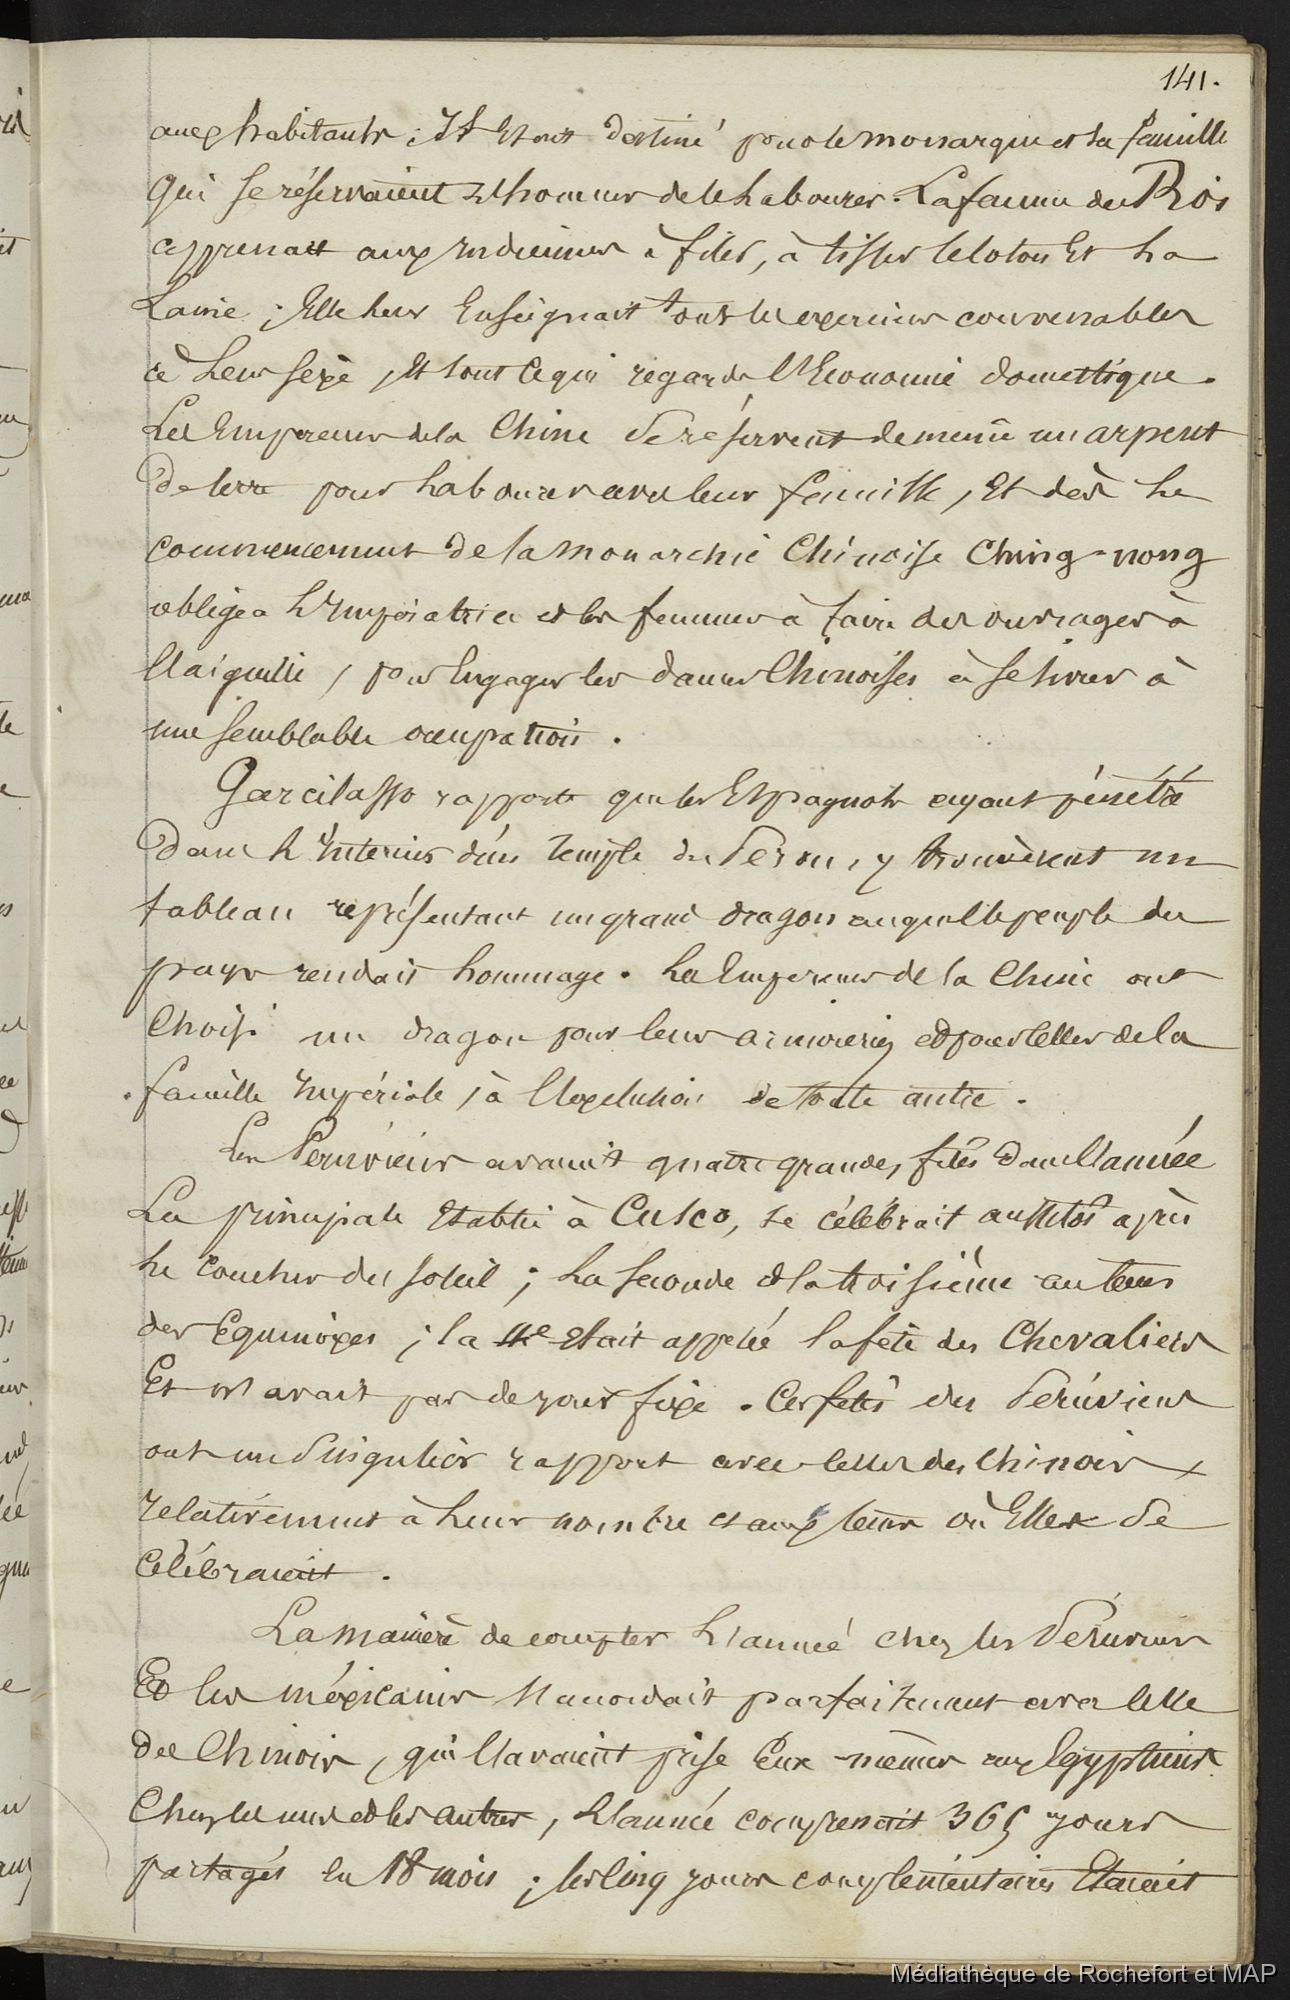 141.
aux habitants ; Il était destiné pour le monarque et sa famille
qui se réservaient l'honneur de le labourer. La femme du Roi
apprenait aux indiennes à filer, à tisser le coton Et la
Laine ; Elle leur Enseignait tous les exercices convenables
à leur sexe, Et tout ce qui regarde l'Economie domestique.
Les Empereurs de la Chine se réservent de même un arpent
De terre pour labourer avec leur famille, Et dès le
commencement de la monarchie Chinoise Ching-nong
obligea l'Impératrice et les femmes à faire des ouvrages à
l'aiguille, pour Engager les dames Chinoises à se livrer à
une semblable occupation.
Garcilasso rapporte que les Espagnols ayant pénétré
Dans l'Interieur d'un Temple du Perou, y trouvèrent un
tableau représentant un grand dragon auquel le peuple du
pays rendait hommage. Les Empereurs de la Chine ont
Choisi un dragon pour leurs armoiries et pour celles de la
famille Impériale, à l'exclusion de toute autre.
Les Peruviens avaient quatre grandes fêtes Dans l'année
La principale Etablie à Cusco, se célébrait aussitôt après
le coucher du soleil ; La seconde et la troisième au tems
des Equinoxes ; la 4e Etait appelée la fête des Chevaliers
Et n'avait pas de jour fixe. Ces fêtes des Péruviens
ont un singulier rapport avec celles des Chinois
relativement à leur nombre et aux tems où Elles se
Célébraient.
La manière de compter L'année chez les Péruviens
Et les méxicains s'accordait parfaitement avec celle
des Chinois, qui l'avaient prise Eux-mêmes aux Egyptiens.
Chez les uns et les autres, L'année comprenait 365 jours
partagés en 18 mois ; les cinq jours complémentaires Etaient
Médiathèque de Rochefort et MAP